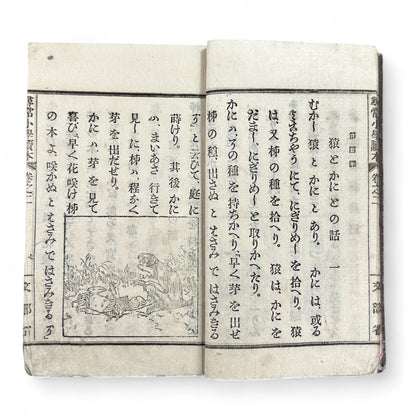 尋常小學讀本 卷之二 文部省
第四課
猿とかにとの話 一
むかし猿とかにとあり。かには、或る
にて、にぎりめしを拾へり。猿
は、又柿の種を拾へり。猿は、かにを
だまし、にぎりめしと取りかへたり。
かには、その種を持ちかへり、「早く芽を出せ
柿の種、出さぬとはさみではさみきる
ぞ」と云ひて、庭に
蒔けり。其後かに
は、まいあさ行きて
見しに、柿は、程なく
芽を出だせり。
かには、芽を見て
喜び、「早く花咲け柿
の木よ、咲かぬとはさみではさみきるぞ
尋常小學讀本 卷之二 七 文部省